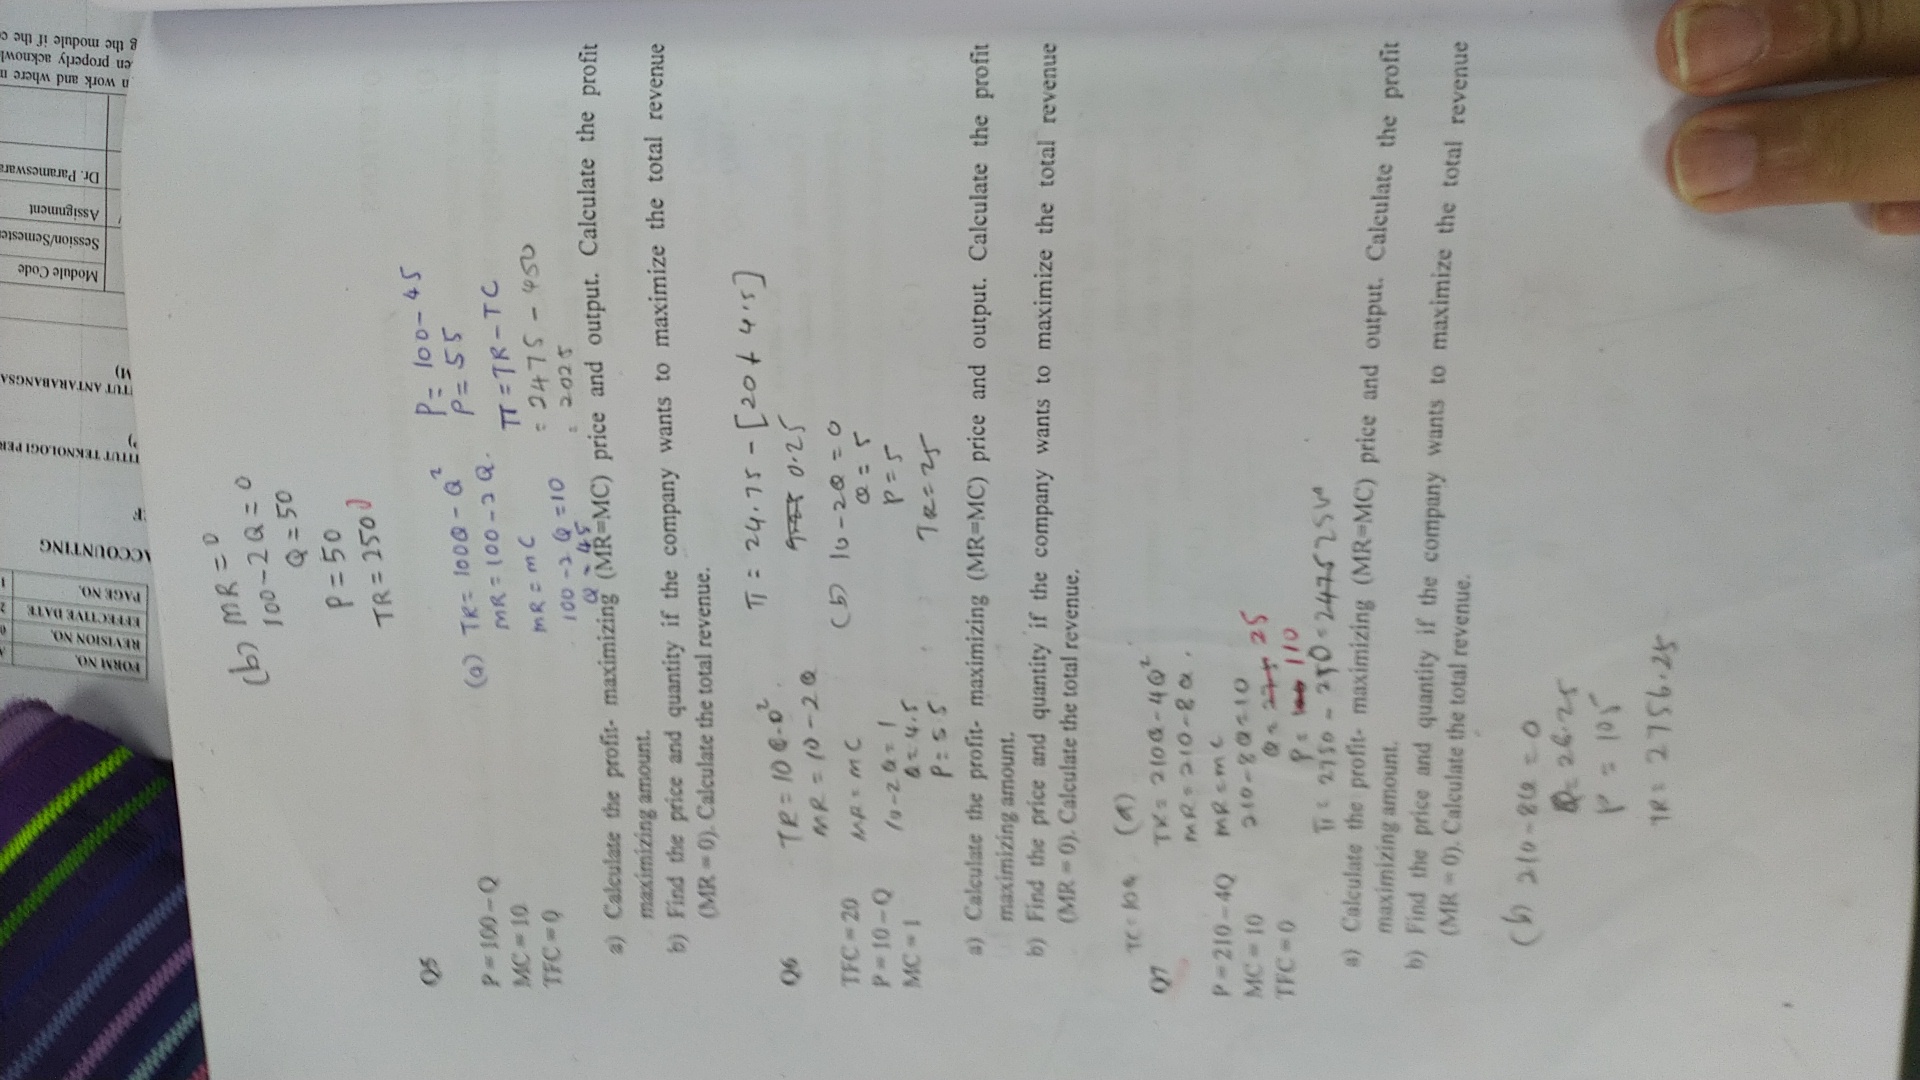 FORM NO.
REVISION NO.
EFFECTIVE DATE 2
PAGE NO. 1
ACCOUNTING
TITUT TEKNOLOGI PER
TUT ANTARABANGSA
Module Code
Session/Semester
Assignment
Dr. Parameswara
n work and where
en properly acknowl
g the module if the
(b) MR = 0
100 - 2Q = 0
Q = 50
P = 50
TR = 2500
Q5
P = 100 - Q
MC = 10
TFC = 0
(a) TR = 100Q - Q²
MR = 100 - 2Q.
MR = MC
100 - 2Q = 10
Q = 45
P = 100 - 45
P = 55
π = TR - TC
= 2475 - 450
= 2025
a) Calculate the profit- maximizing (MR=MC) price and output. Calculate the profit
maximizing amount.
b) Find the price and quantity if the company wants to maximize the total revenue
(MR = 0). Calculate the total revenue.
Q6
TFC = 20
P = 10 - Q
MC = 1
TR = 10Q - Q².
MR = 10 - 2Q
MR = MC
10 - 2Q = 1
Q = 4.5
P = 5.5
π = 24.75 - [20 + 4.5]
0.25
(b) 10 - 2Q = 0
Q = 5
P = 5
TR = 25
a) Calculate the profit- maximizing (MR=MC) price and output. Calculate the profit
maximizing amount.
b) Find the price and quantity if the company wants to maximize the total revenue
(MR = 0). Calculate the total revenue.
TC = 10Q
Q7
P = 210 - 4Q
MC = 10
TFC = 0
(a)
TR = 210Q - 4Q²
MR = 210 - 8Q.
MR = MC
210 - 8Q = 10
Q = 25
P = 110
π = 2750 - 250 = 2475 2500
a) Calculate the profit- maximizing (MR=MC) price and output. Calculate the profit
maximizing amount.
b) Find the price and quantity if the company wants to maximize the total revenue
(MR = 0). Calculate the total revenue.
(b) 210 - 8Q = 0
Q = 26.25
P = 105
TR = 2756.25